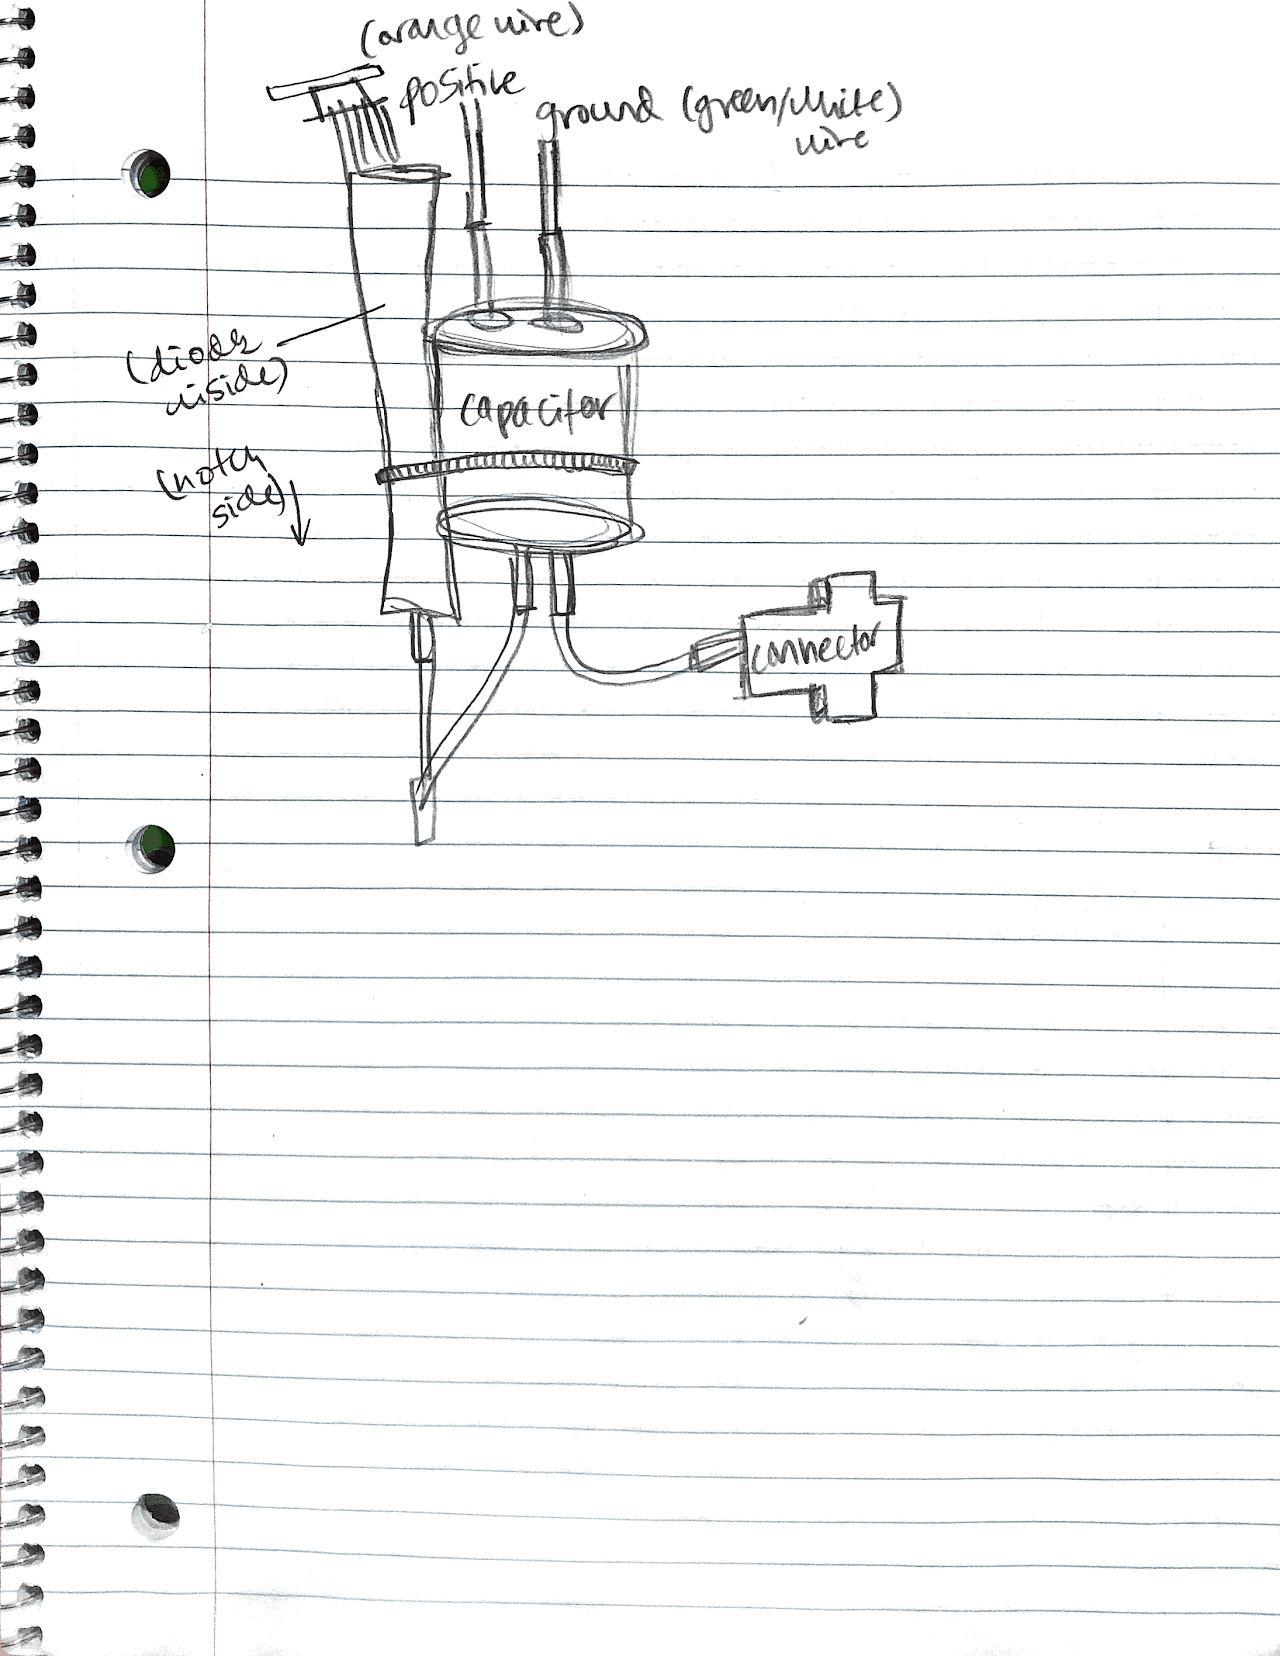 (orange wire)
positive
ground (green/white)
wire
(diode
inside)
capacitor
(notch
side)
connector